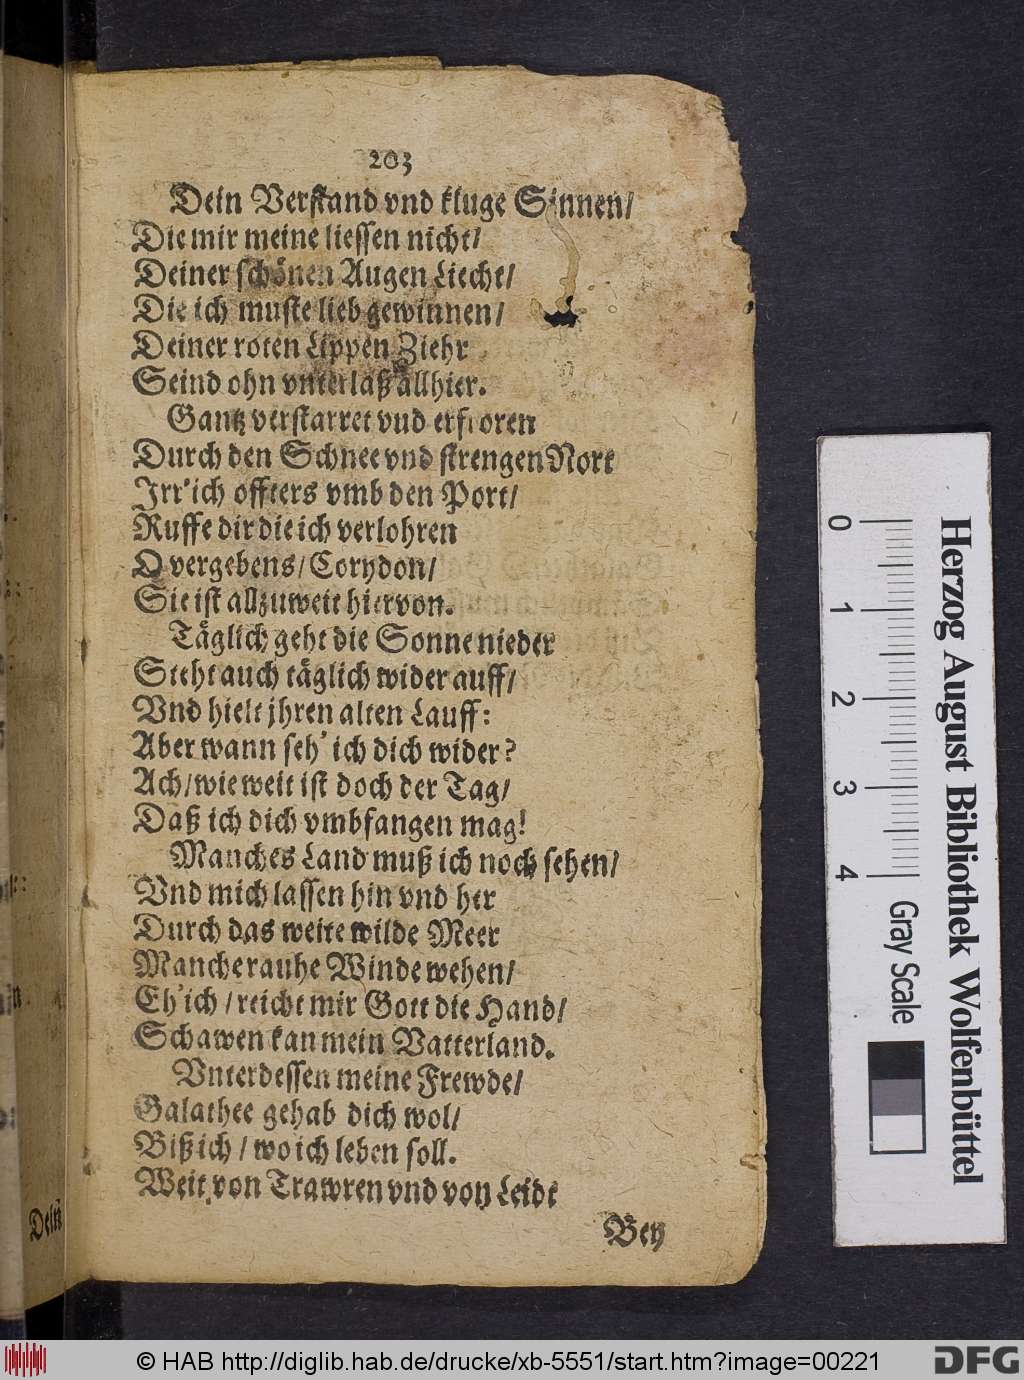 203
Dein Verstand vnd kluge Sinnen/
Die mir meine liessen nicht/
Deiner schönen Augen Liecht/
Die ich muste lieb gewinnen/
Deiner roten Lippen Ziehr
Seind ohn vnterlaß allhier.
Gantz verstarret vud erfroren
Durch den Schnee vnd strengen Nort
Irr' ich offters vmb den Port/
Ruffe dir die ich verlohren
O vergebens/ Corydon/
Sie ist allzuweit hiervon.
Täglich geht die Sonne nieder
Steht auch täglich wider auff/
Vnd hielt jhren alten Lauff:
Aber wann seh' ich dich wider?
Ach/ wie weit ist doch der Tag/
Daß ich dich vmbfangen mag!
Manches Land muß ich noch sehen/
Vnd mich lassen hin vnd her
Durch das weite wilde Meer
Manche rauhe Winde wehen/
Eh' ich / reicht mir Gott die Hand/
Schawen kan mein Vatterland.
Vnterdessen meine Frewde/
Galathee gehab dich wol/
Biß ich / wo ich leben soll.
Weit von Trawren vnd von Leide
Bey
Herzog August Bibliothek Wolfenbüttel
0 1 2 3 4
Gray Scale
© HAB http://diglib.hab.de/drucke/xb-5551/start.htm?image=00221
DFG